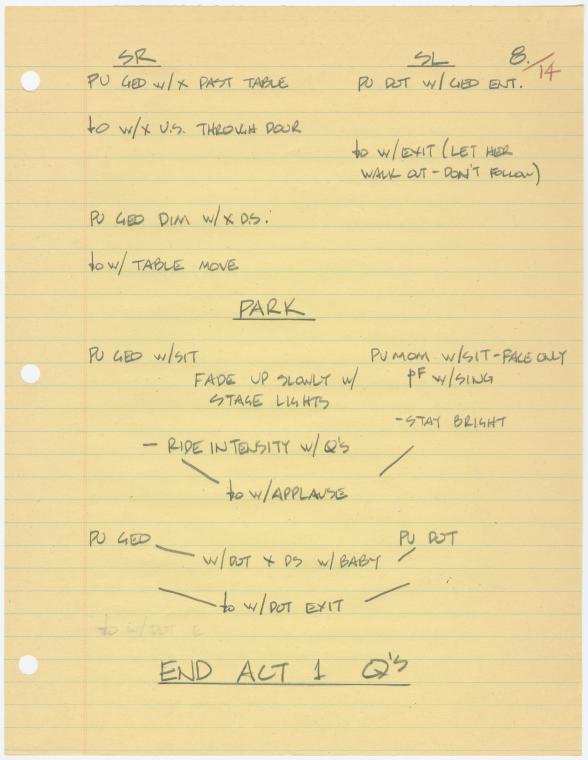 SR SL 8/14
PU GEO w/X PAST TABLE PU DOT w/ GEO ENT.
to w/X U.S. THROUGH DOOR
to w/EXIT (LET HER
WALK OUT - DON'T FOLLOW)
PU GEO DIM w/X D.S.
to w/ TABLE MOVE
PARK
PU GEO w/SIT PU MOM w/SIT - FACE ONLY
FADE UP SLOWLY w/ PF w/SING
STAGE LIGHTS
- STAY BRIGHT
- RIDE INTENSITY w/ Q's
to w/APPLAUSE
PU GEO PU DOT
w/DOT X DS w/BABY
to w/DOT EXIT
to w/DOT E
END ACT 1 Q's